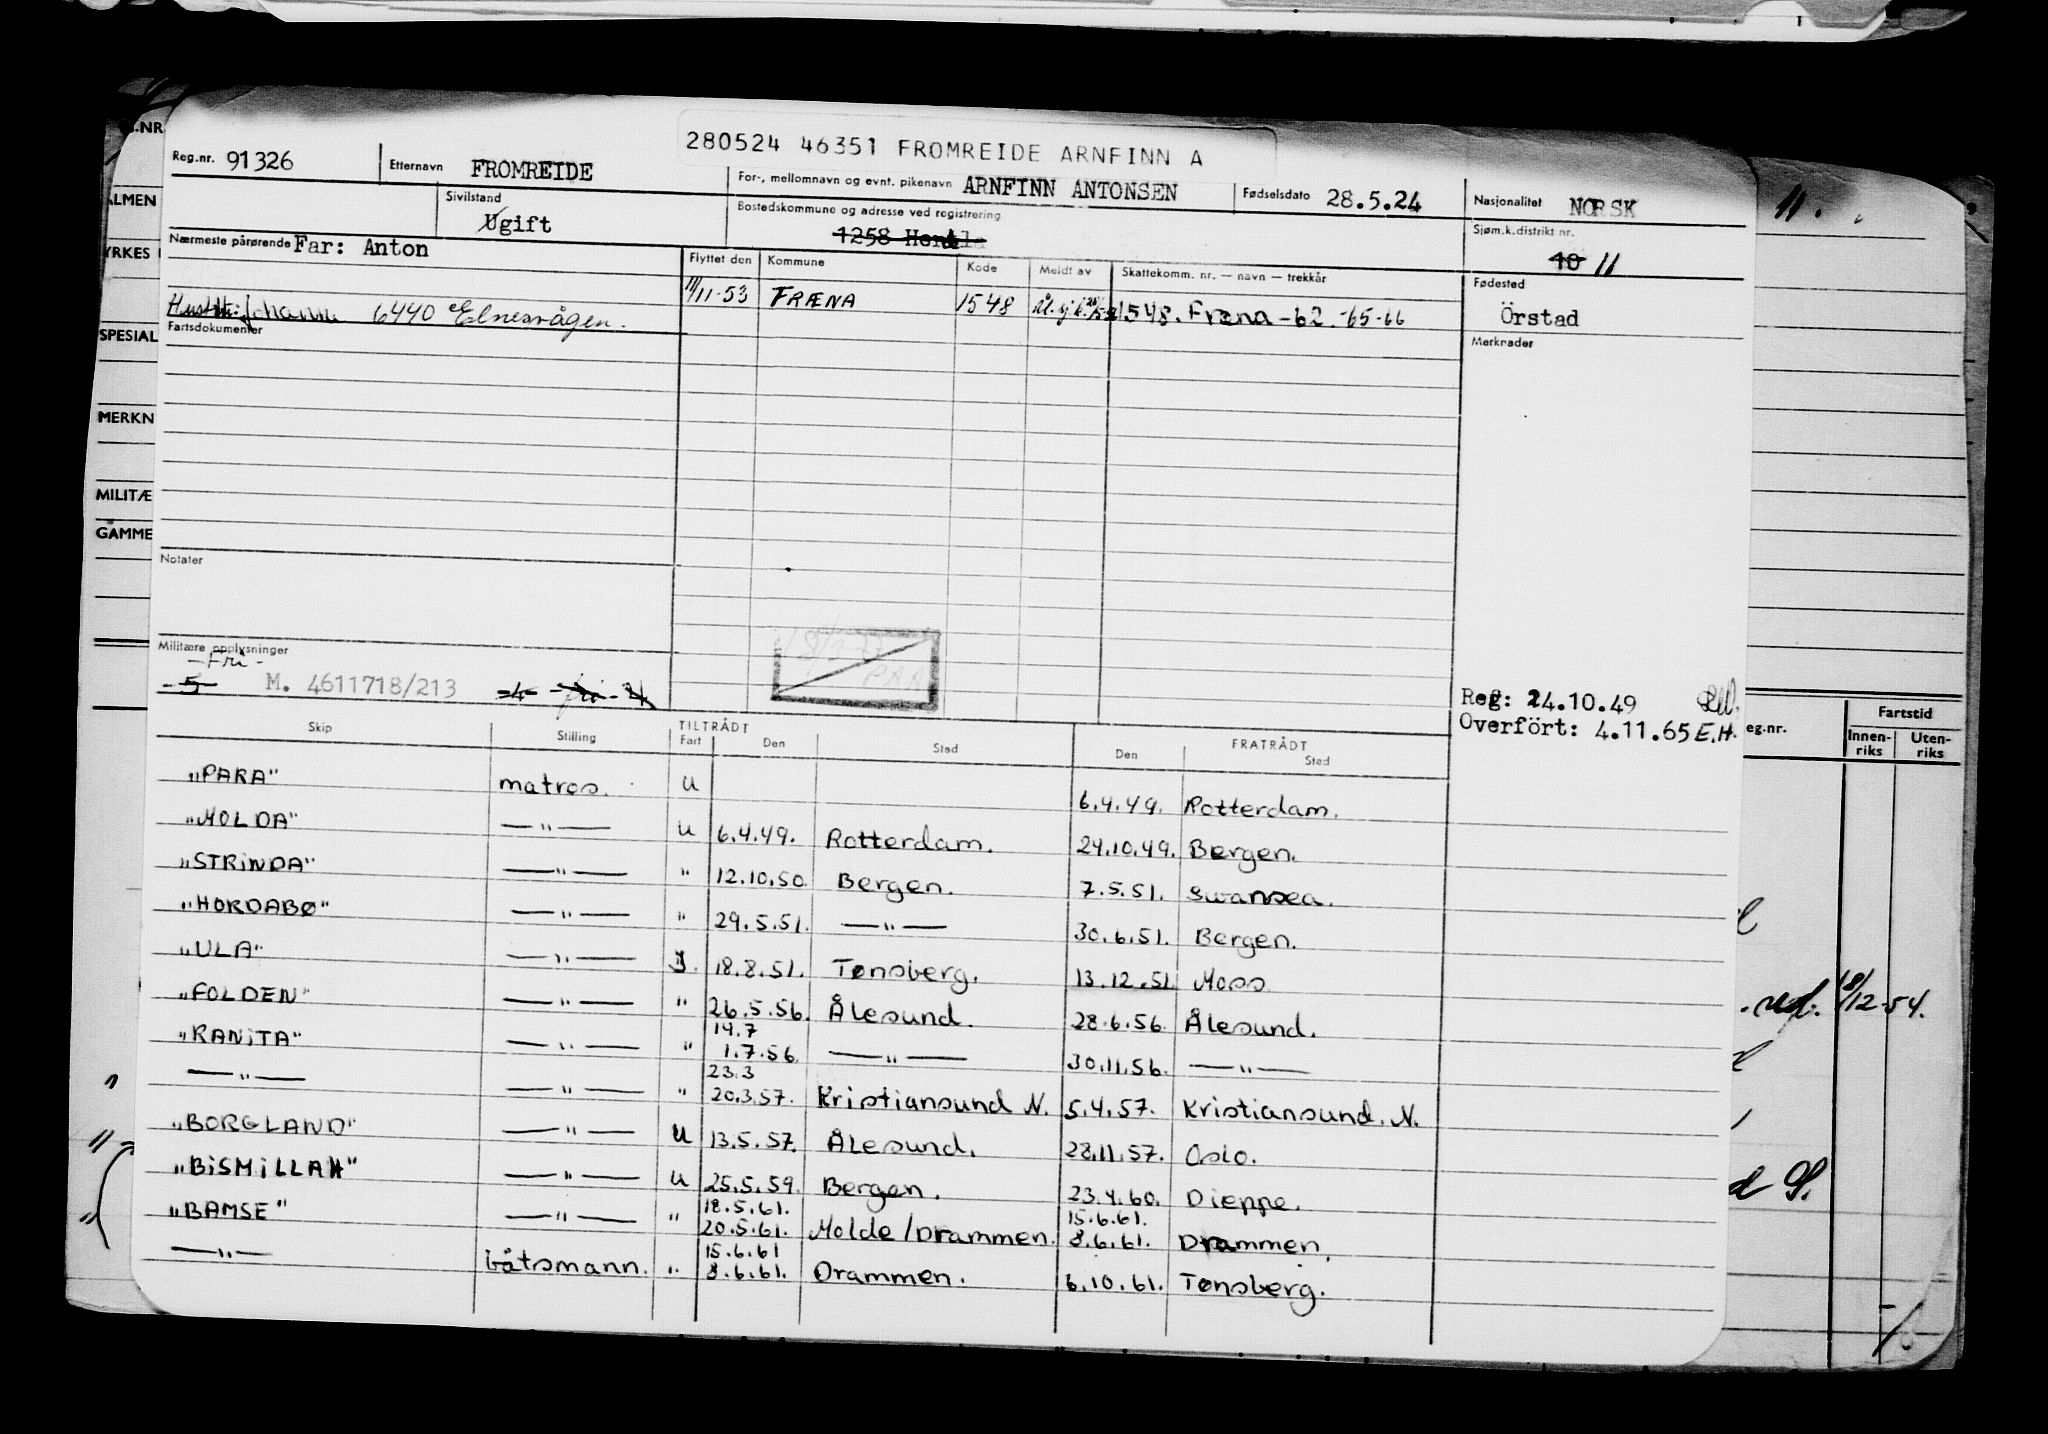 280524 46351 FROMREIDE ARNFINN A
Reg.nr. 91326 Etternavn FROMREIDE For-, mellomnavn og evnt. pikenavn ARNFINN ANTONSEN Fødselsdato 28.5.24 Nasjonalitet NORSK
Sivilstand Ugift Bostedskommune og adresse ved registrering 1258 Herdla Sjøm.k.distrikt nr. 10 11
Nærmeste pårørende Far: Anton Flyttet den Kommune Kode Meldt av Skattekomm. nr. — navn — trekkår Fødested
Hustru: Johanne 6440 Elnesvågen. 11/11-53 FRÆNA 1548 1548. Fræna -62. -65-66 Örstad
Fartsdokumenter Merknader
Notater
Militære opplysninger
-Fri-
-5- M. 4611718/213 -4- -fri- 4
Reg: 24.10.49
Overfört: 4.11.65 E.H.
Skip Stilling TILTRÅDT Fart Den Sted FRATRÅDT Den Sted
"PARA" matros. U 6.4.49. Rotterdam.
"MOLDA" —"— U 6.4.49. Rotterdam. 24.10.49. Bergen.
"STRINDA" —"— " 12.10.50. Bergen. 7.5.51. Swansea.
"HORDABØ" —"— " 29.5.51. —"— 30.6.51. Bergen.
"ULA" —"— I. 18.8.51. Tønsberg. 13.12.51. Moss
"FOLDEN" —"— " 26.5.56. Ålesund. 28.6.56. Ålesund.
14.7
"RANITA" —"— " 1.7.56. —"— 30.11.56. —"—
23.3
—"— —"— " 20.3.57. Kristiansund N. 5.4.57. Kristiansund. N.
"BORGLAND" —"— U 13.5.57. Ålesund. 28.11.57. Oslo.
"BISMILLAH" —"— U 25.5.59. Bergen. 23.4.60. Dieppe.
18.5.61. 15.6.61.
"BAMSE" —"— " 20.5.61. Molde/Drammen. 8.6.61. Drammen.
15.6.61
—"— båtsmann. " 8.6.61. Drammen. 6.10.61. Tønsberg.
.NR.
ALMEN
YRKES
SPESIAL
MERKN
MILITÆ
GAMME
11.
eg.nr. Fartstid
Innen-riks Uten-riks
18/12-54.